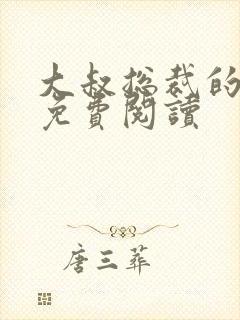 大叔总裁的
免費閱讀
唐三葬